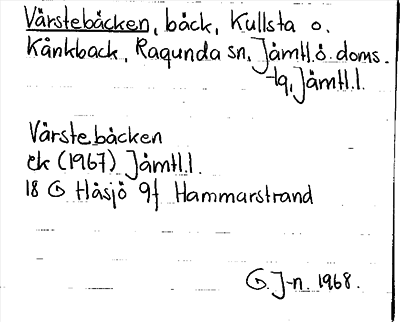 Vårstebäcken, bäck, Kullsta o.
Kånkback, Ragunda sn, Jämtl.ö. doms.
tg, Jämtl.l.
Vårstebäcken
ek (1967) Jämtl.l.
18 G Håsjö 9f Hammarstrand
G. J-n. 1968.